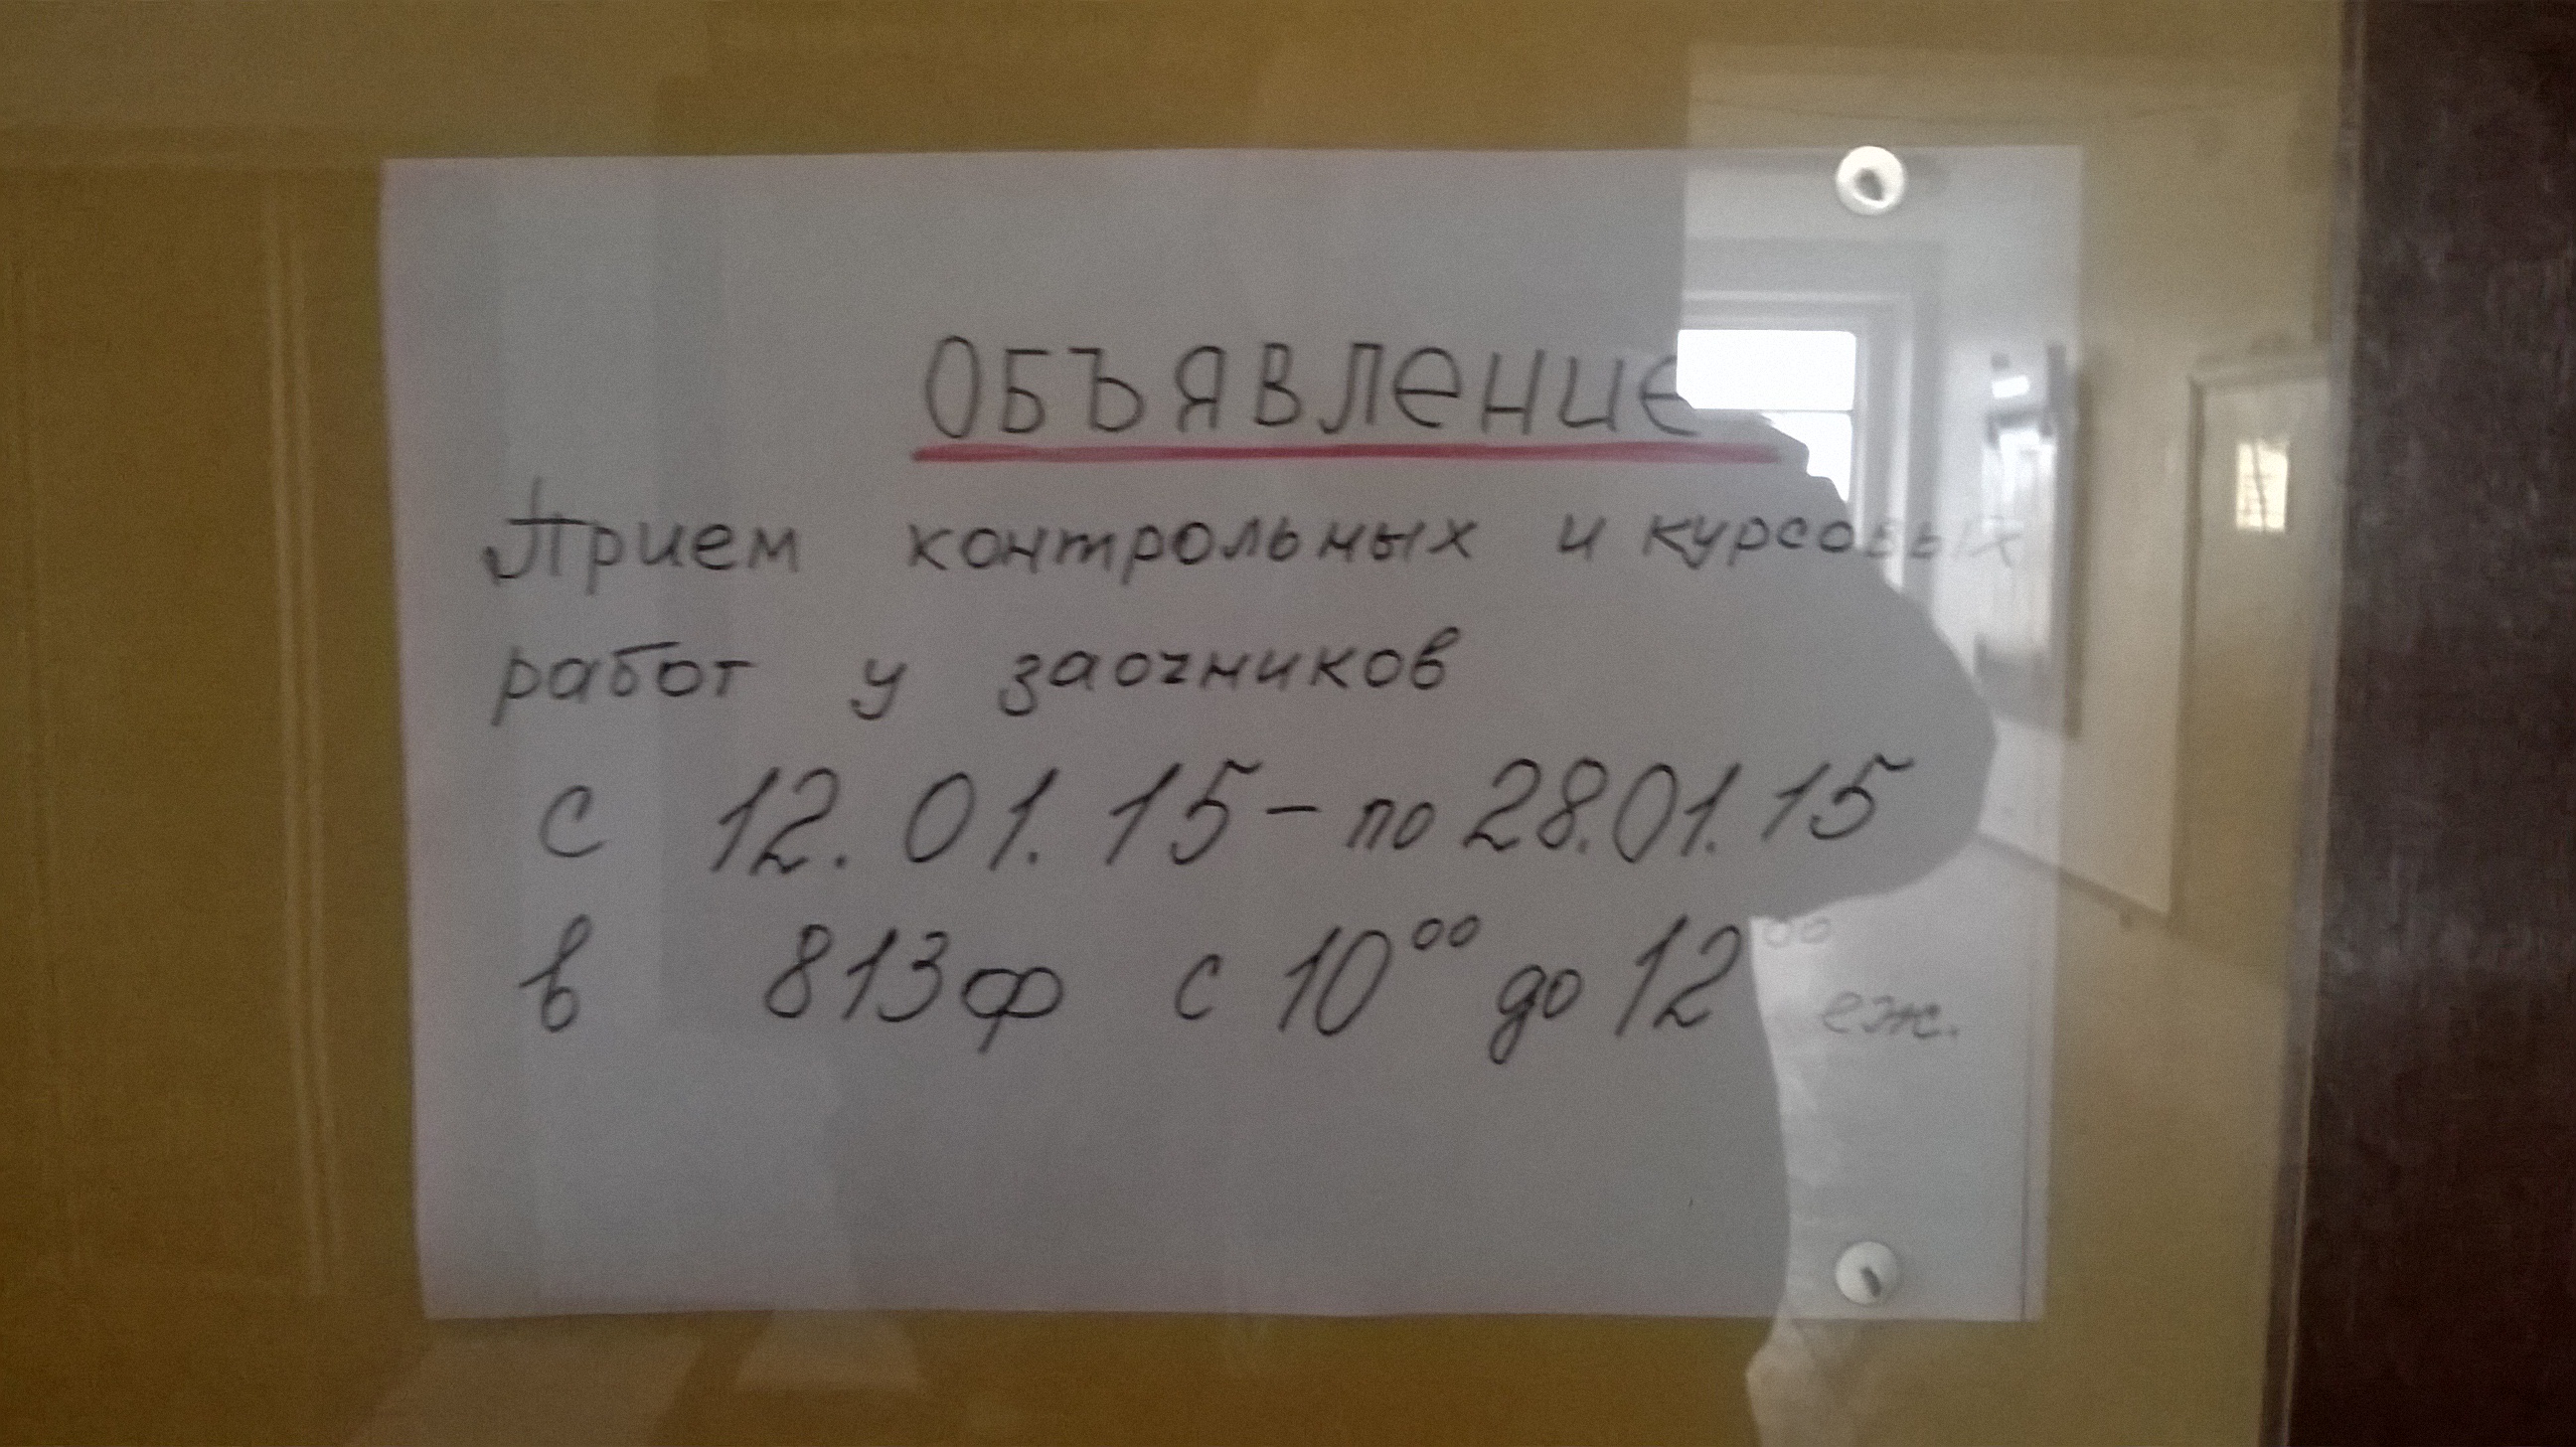 ОБЪЯВЛЕНИЕ
Прием контрольных и курсовых
работ у заочников
с 12.01.15 – по 28.01.15
в 813ф с 10⁰⁰ до 12⁰⁰ еж.